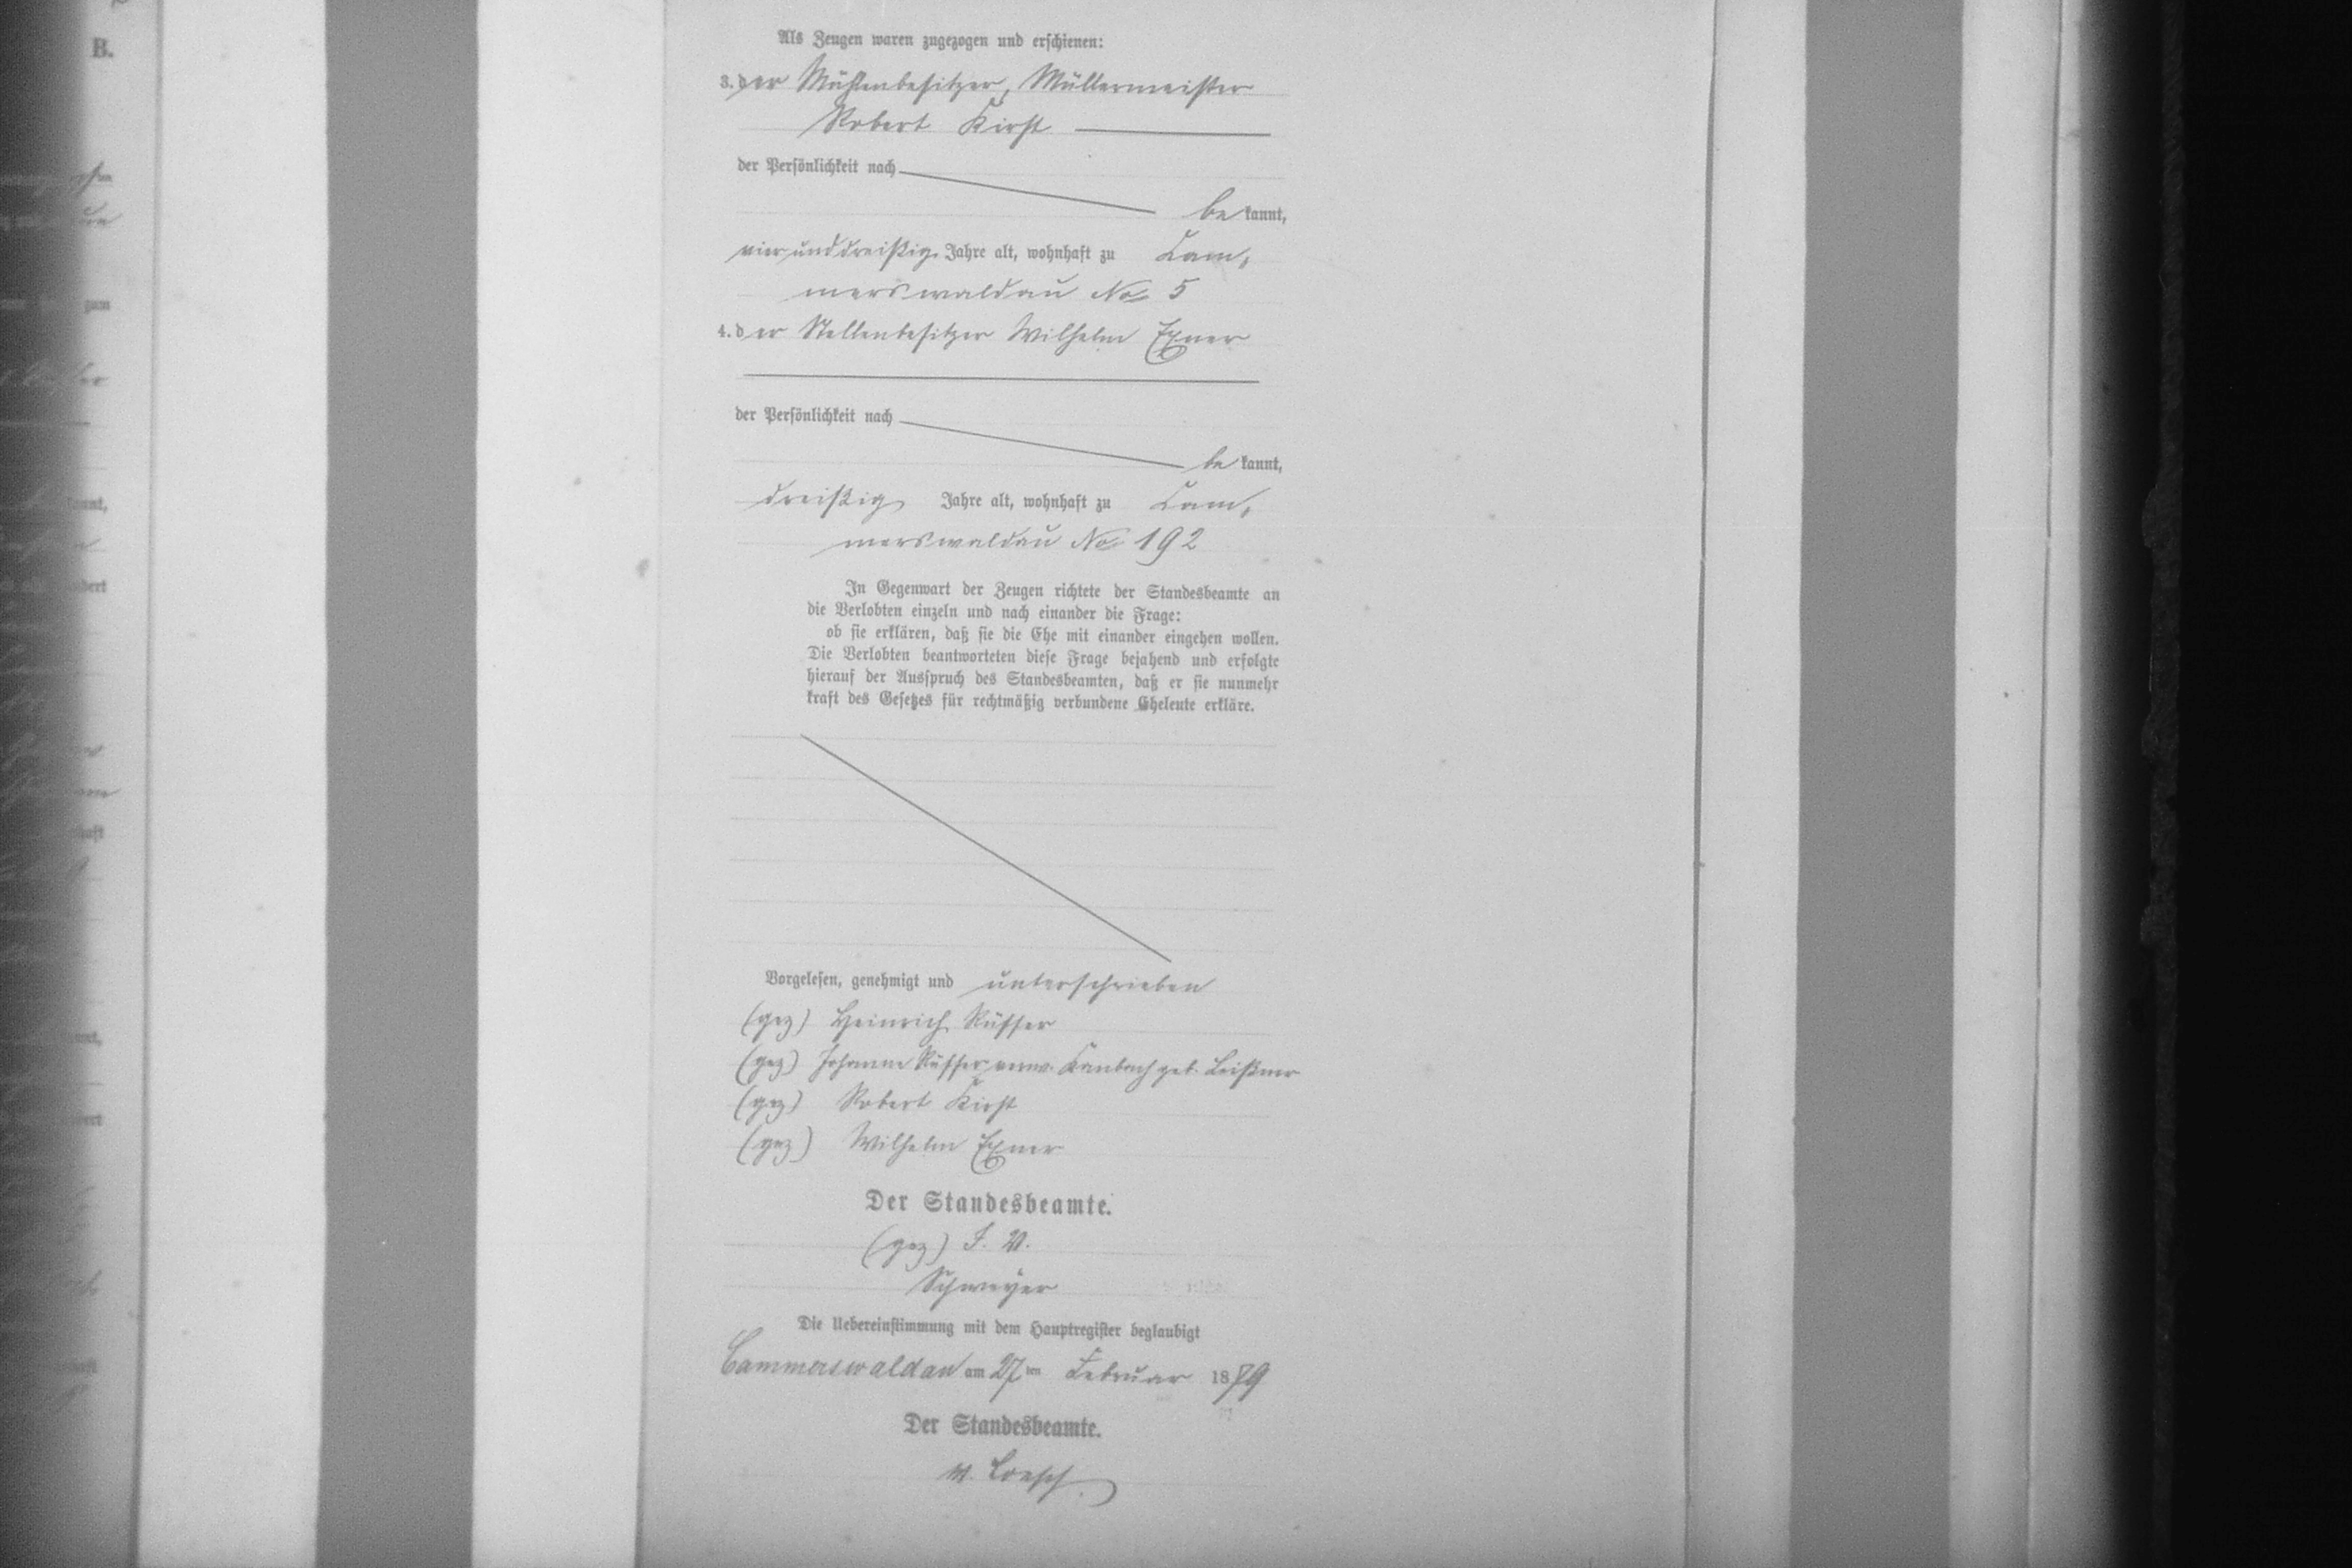 B.
Als Zeugen waren zugezogen und erschienen:
3. der Mühlenbesitzer, Müllermeister
Robert Kirst
der Persönlichkeit nach
be kannt,
vierunddreißig Jahre alt, wohnhaft zu Cam,
merswaldau No 5
4. der Stellenbesitzer Wilhelm Exner
der Persönlichkeit nach
be kannt,
dreißig Jahre alt, wohnhaft zu Cam,
merswaldau No 192
In Gegenwart der Zeugen richtete der Standesbeamte an
die Verlobten einzeln und nach einander die Frage:
ob sie erklären, daß sie die Ehe mit einander eingehen wollen.
Die Verlobten beantworteten diese Frage bejahend und erfolgte
hierauf der Ausspruch des Standesbeamten, daß er sie nunmehr
kraft des Gesetzes für rechtmäßig verbundene Eheleute erkläre.
Vorgelesen, genehmigt und unterschrieben
(gez) Heinrich Rüffer
(gez) Johanne Rüffer verw. Kambach geb. Leißner
(gez) Robert Kirst
(gez) Wilhelm Exner
Der Standesbeamte.
(gez) I. V.
Schweyer
Die Uebereinstimmung mit dem Hauptregister beglaubigt
Cammerswaldau am 27 ten Februar 1879
Der Standesbeamte.
v. Loesch